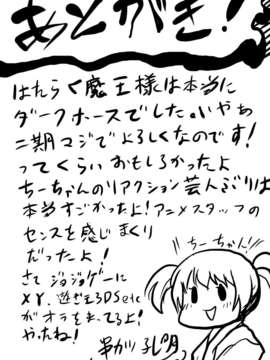 あとがき！
はたらく魔王様は本当に
ダークホースでした。いやぁ
二期マジでよろしくなのです！
ってくらいおもしろかったよ
ちーちゃんのリアクション芸人ぶりは
本当すごかったよ！アニメスタッフの
センスを感じまくり
だったよ！
さて ジョジョゲーに
XY、遊戯王3DSetc
がオラを待ってるよ！
やったね！
串がつ孔明
!!ちーちゃん!!